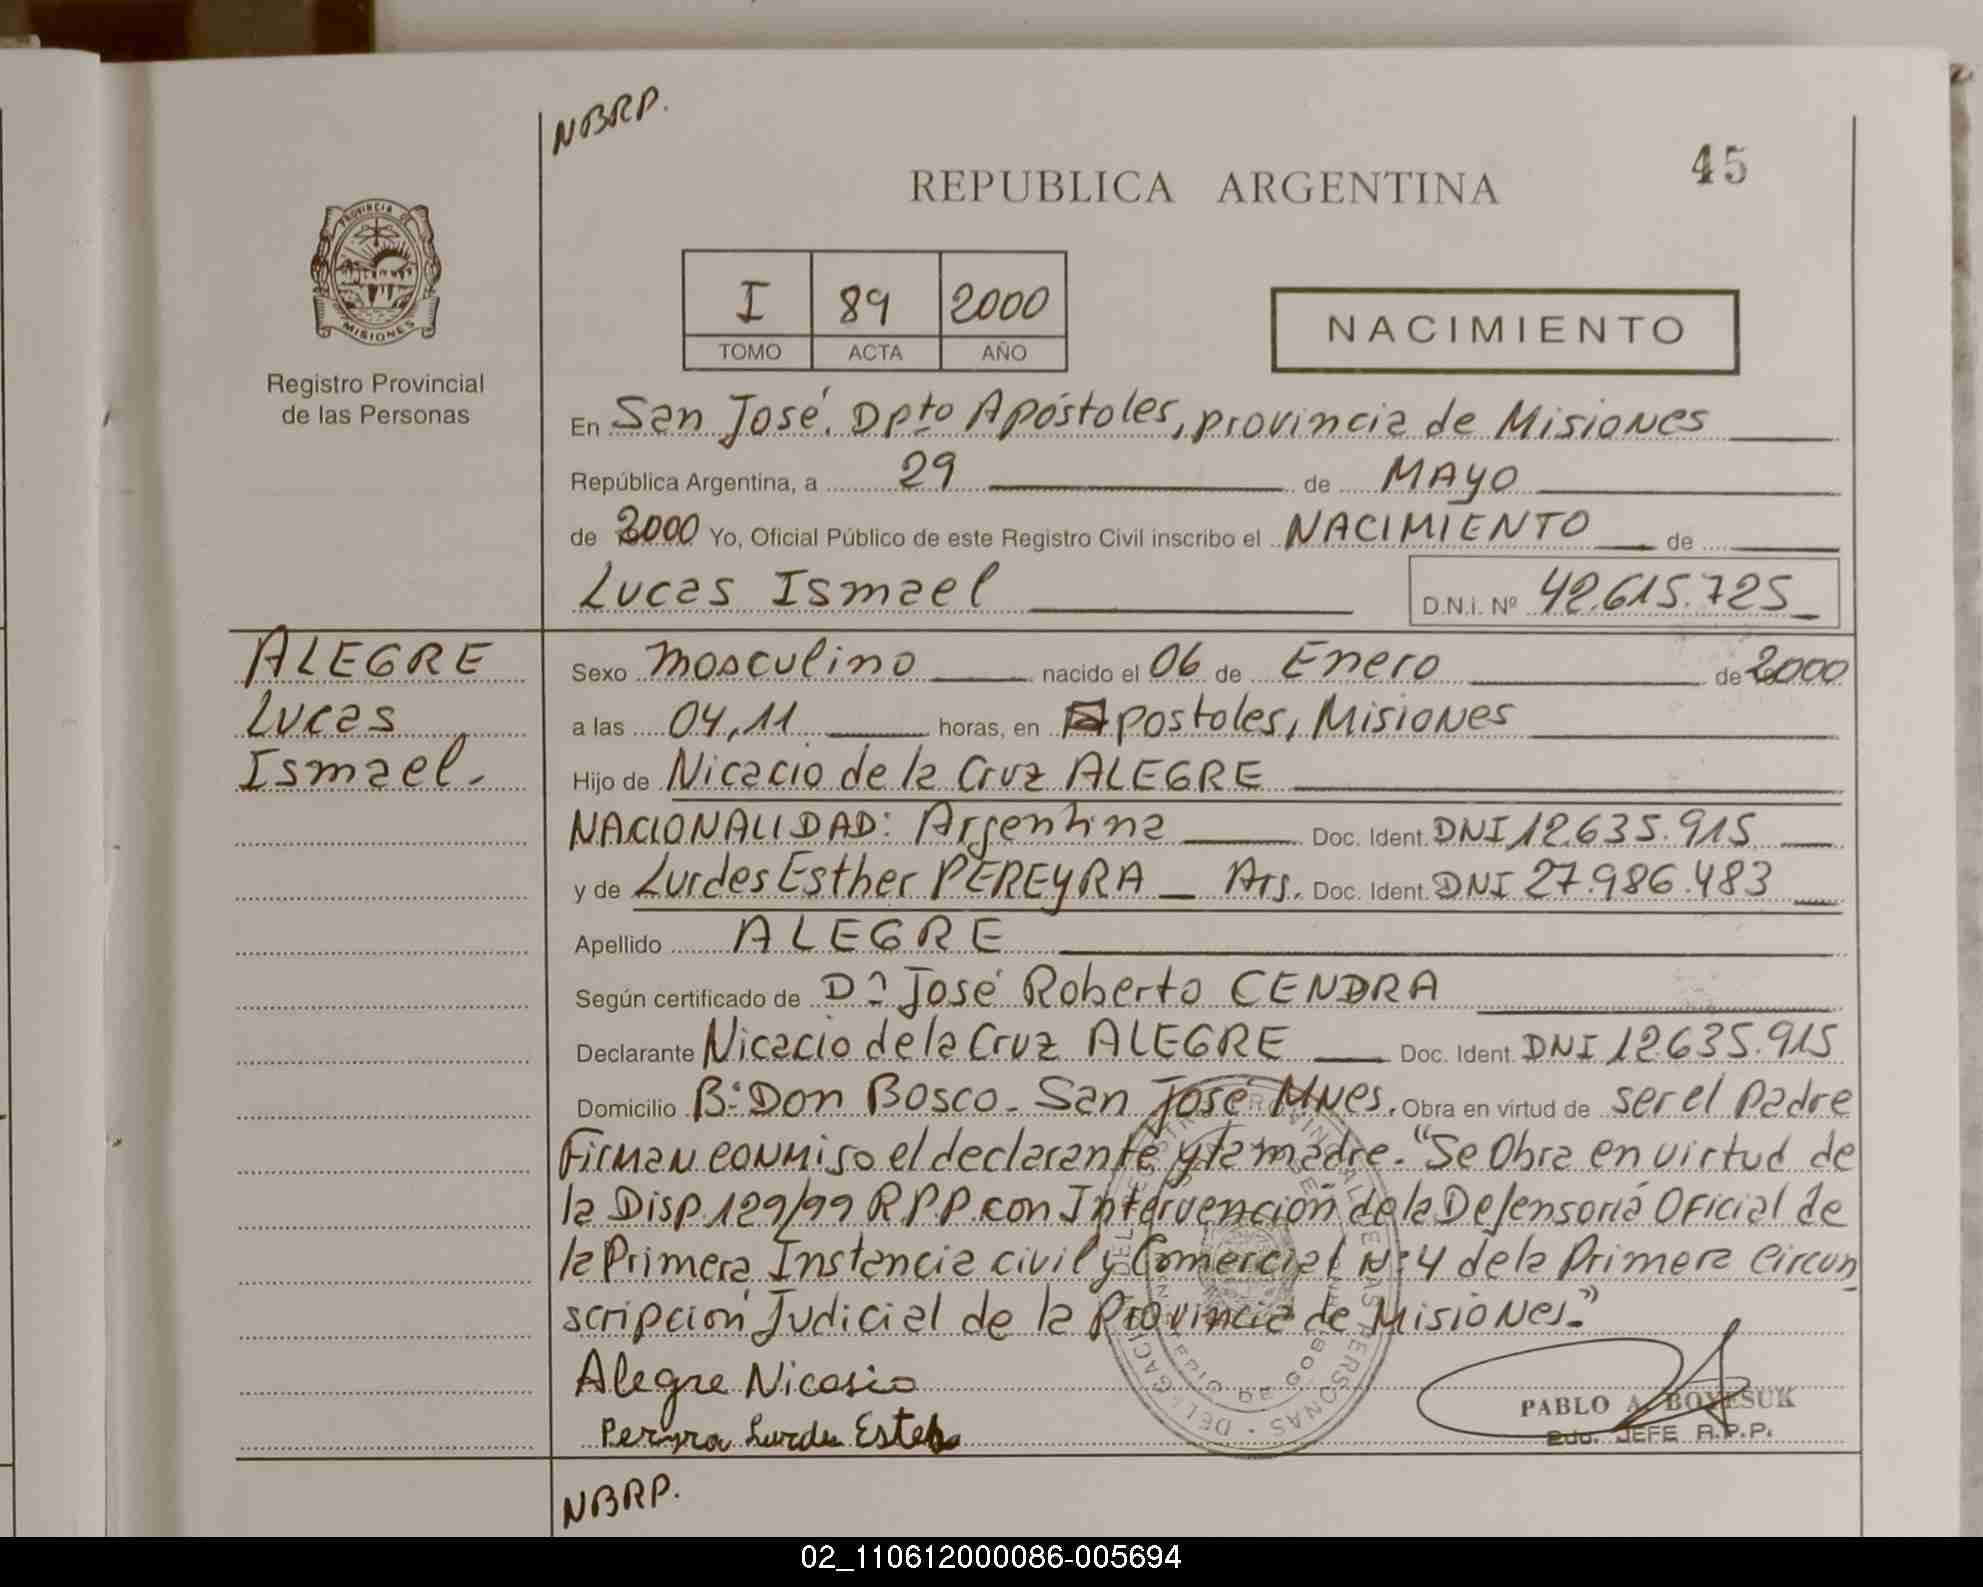 NBRP.
REPUBLICA ARGENTINA
45
PROVINCIA DE
MISIONES
Registro Provincial
de las Personas
I 89 2000
TOMO ACTA AÑO
NACIMIENTO
En San José. Dpto Apóstoles, provincia de Misiones
República Argentina, a 29 de MAYO
de 2000 Yo, Oficial Público de este Registro Civil inscribo el NACIMIENTO de
Lucas Ismael D.N.i. Nº 42.615.725
ALEGRE
Lucas
Ismael.
Sexo masculino nacido el 06 de Enero de 2000
a las 04,11 horas, en Apostoles, Misiones
Hijo de Nicacio de la Cruz ALEGRE
NACIONALIDAD: Argentina Doc. Ident. DNI 12.635.915
y de Lurdes Esther PEREYRA Arg. Doc. Ident. DNI 27.986.483
Apellido ALEGRE
Según certificado de Dn José Roberto CENDRA
Declarante Nicacio de la Cruz ALEGRE Doc. Ident. DNI 12.635.915
Domicilio Bº Don Bosco - San José Mnes. Obra en virtud de ser el Padre
Firman conmigo el declarante y la madre. "Se Obra en virtud de
la Disp. 129/99 RPP. con Intervención de la Defensoría Oficial de
la Primera Instancia civil y Comercial Nº 4 de la Primera Circun
scripción Judicial de la Provincia de Misiones."
Alegre Nicasio
Pereyra Lurdes Ester
PABLO A. BOYESUK
2do. JEFE R.P.P.
NBRP.
02_110612000086-005694